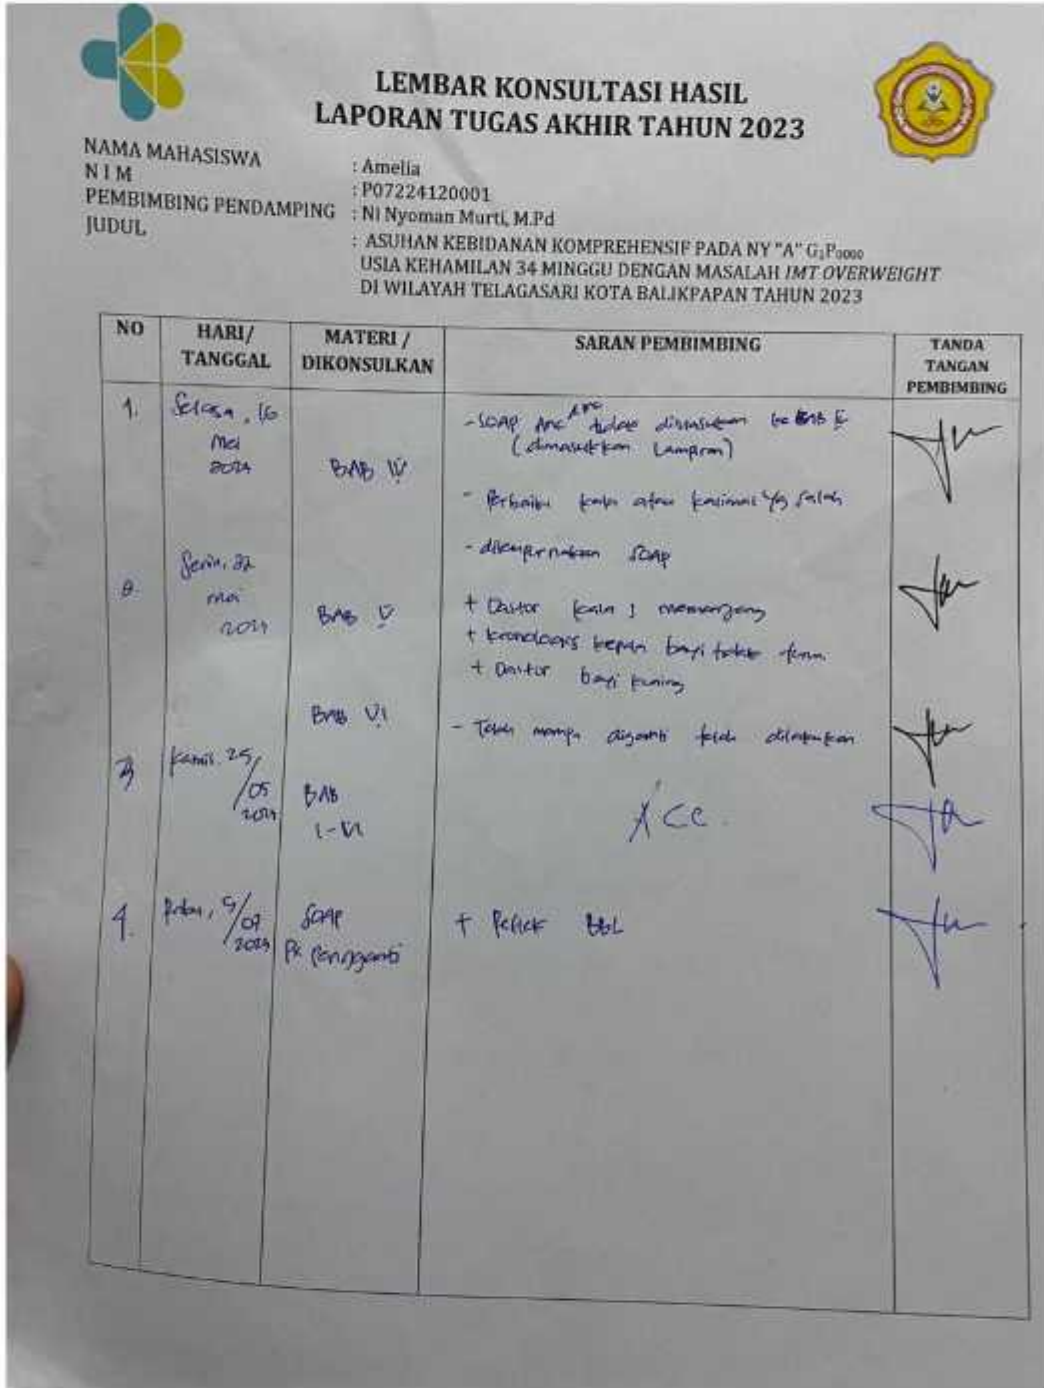 LEMBAR KONSULTASI HASIL
LAPORAN TUGAS AKHIR TAHUN 2023
NAMA MAHASISWA : Amelia
N I M : P07224120001
PEMBIMBING PENDAMPING : Ni Nyoman Murti, M.Pd
JUDUL : ASUHAN KEBIDANAN KOMPREHENSIF PADA NY "A" G₁P₀₀₀₀
USIA KEHAMILAN 34 MINGGU DENGAN MASALAH IMT OVERWEIGHT
DI WILAYAH TELAGASARI KOTA BALIKPAPAN TAHUN 2023
NO HARI/ TANGGAL MATERI / DIKONSULKAN SARAN PEMBIMBING TANDA TANGAN PEMBIMBING
1. Selasa, 16 Mei
BAB IV
- SOAP ANC tidak dimasukkan ke BAB
(dimasukkan Lampiran)
- Perbaiki kata atau yg salah
Senin, 22 mei
BAB V
- SOAP
+ kala 1 memanjang
+ kepala bayi
+ bayi kuning
BAB VI
- Telah mampu diganti telah dilakukan
3 Kamis. 25/05
BAB I-VI
ACC.
4. Rabu, /07
SOAP
Pengganti
+ BBL